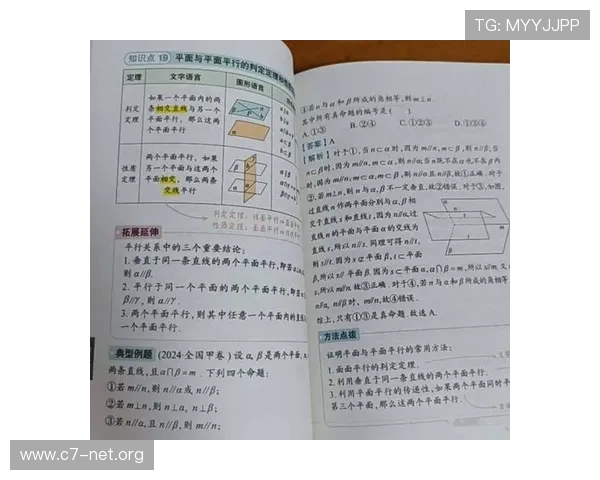 TG: MYYJJPP
知识点 19 平面与平面平行的判定定理和性质
定理 文字语言 图形语言
判定定理
如果一个平面内的两
条相交直线与另一个
平面平行，那么这两
个平面平行
性质定理
两个平面平行，如果
另一个平面与这两个
平面相交，那么两条
交线平行
判定定理：线面平行⇒面面平行
性质定理：面面平行⇒线线平行
拓展延伸
平行关系中的三个重要结论：
1. 垂直于同一条直线的两个平面平行，即若
则 α//β.
2. 平行于同一个平面的两个平面平行，即若
β//γ，则 α//γ.
3. 两个平面平行，则其中任意一个平面内的直线
一个平面平行.
典型例题 (2024·全国甲卷) 设 α, β 是两个平面，
两条直线，且 α∩β=m. 下列四个命题：
①若 m//n，则 n//α 或 n//β；
②若 m⊥n，则 n⊥α, n⊥β；
③若 n//α，且 n//β，则 m//n；
④若 n 与 α 和 β 所成的角相等，则 m⊥n.
其中所有真命题的编号是（ ）
A. ①③ B. ②④ C. ①②③ D. ①③④
【答案】A
【解析】对于①，当 n⊂α 时，因为 m//n, m⊂β，则 n//β，当
n⊂β 时，因为 m//n, m⊂α，则 n//α，当 n 既不在 α 也不在 β 内
时，因为 m//n, m⊂α, m⊂β，则 n//α 且 n//β，故①正确. 对于
②，若 m⊥n，则 n 与 α, β 不一定垂直，故②错误. 对于③，如图，
过直线 n 作两平面分别与 α, β 相
交于直线 s 和直线 t，因为 n//α，过
直线 n 的平面与平面 α 的交线为
直线 s，所以 n//s. 同理可得 n//t，
则 s//t. 因为 s⊄平面 β, t⊂平面
β，所以 s//平面 β. 因为 s⊂平面 α, α∩β=m，所以 s//m. 又
n//s，所以 m//n. 故③正确. 对于④，若 n 与 α 和 β 所成的角相等，
n//α, n//β 时，m//n，故④错误.
综上，只有①③是真命题. 故选 A.
方法点拨
证明平面与平面平行的常用方法：
1. 面面平行的判定定理.
2. 利用垂直于同一条直线的两个平面平行.
3. 利用平面平行的传递性，如果两个平面同时平
第三个平面，那么这两个平面平行.
www.c7-net.org